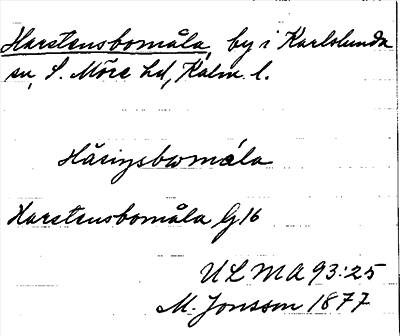 Harstensbomåla, by i Karlslunda
sn, S. Möre hd, Kalm. l.
Håsinsbomåla
Harstensbomåla G16
ULMA 93:25
M. Jonsson 1877